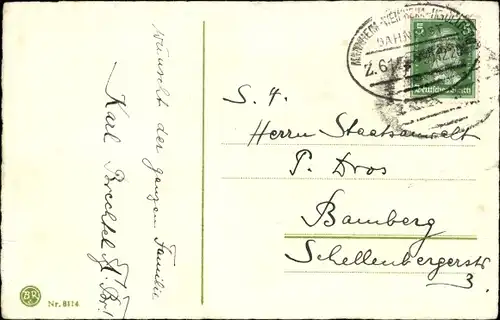 wünscht der ganzen Familie
Karl Brechtel
MANNHEIM-WEINHEIM-
BAHN
Z.61
5 5
Deutsches Reich
S. H.
Herrn Staatsanwalt
P. Dros
Bamberg
Schellenbergerstr
3.
BR
Nr. 8114